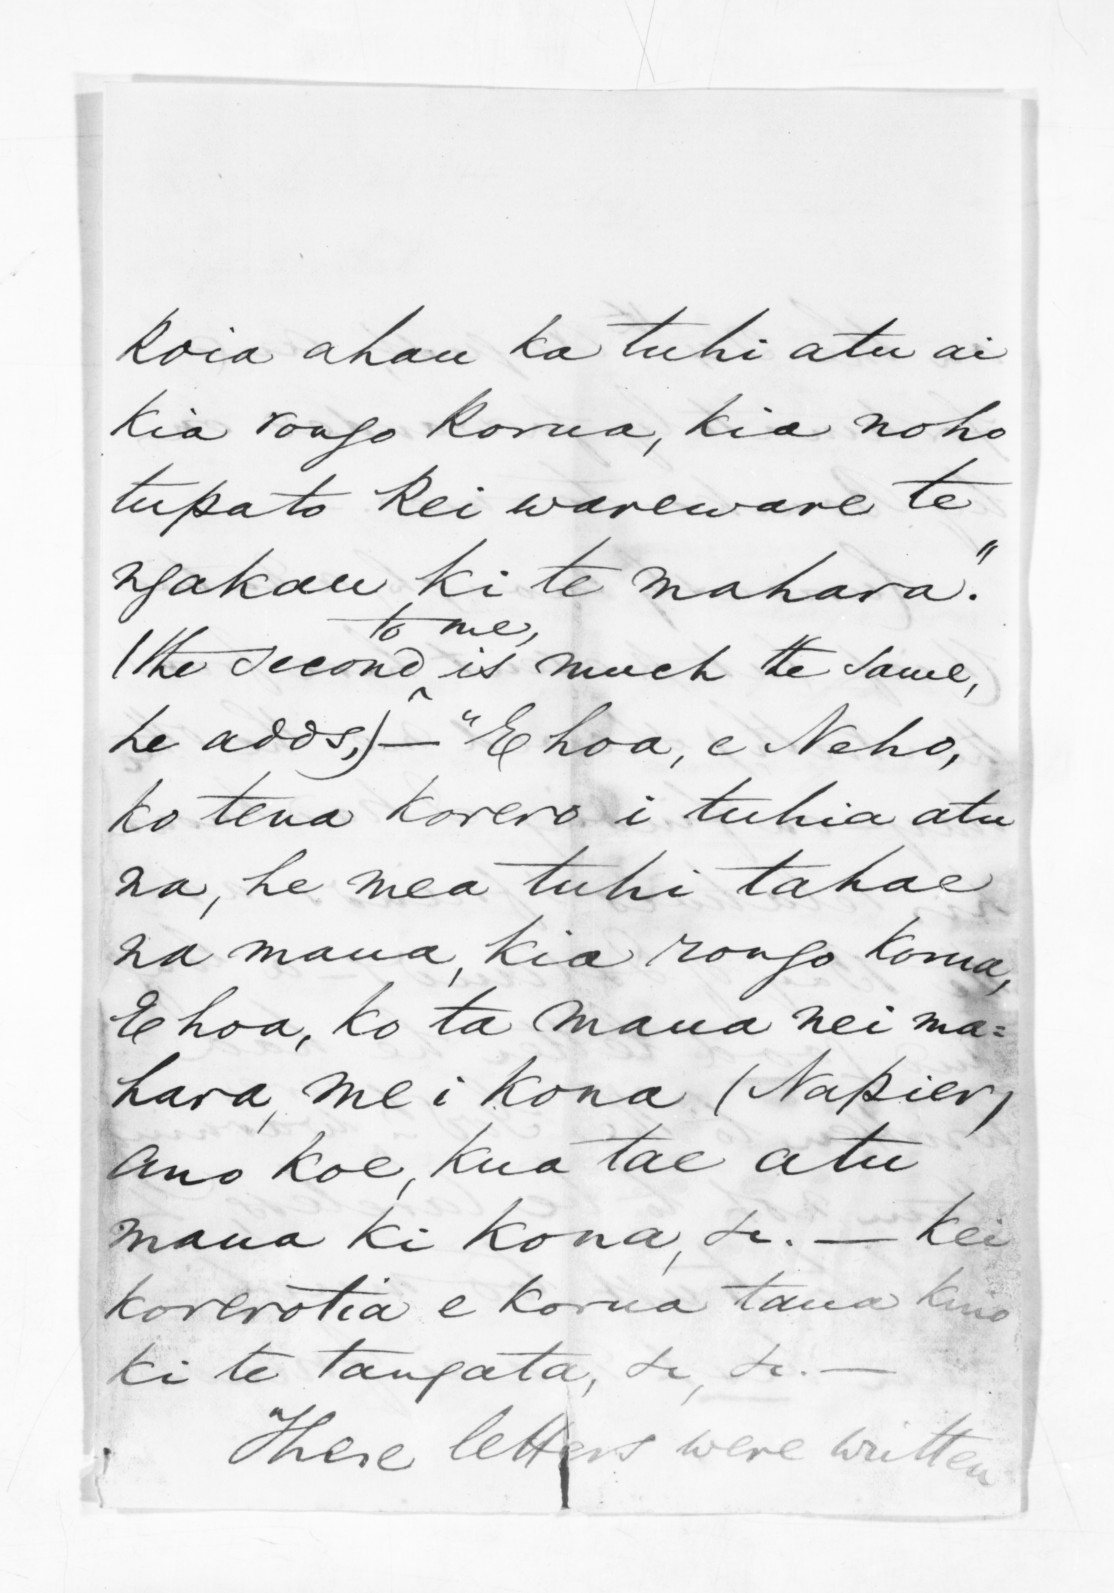 Koia ahau ka tuhi atu ai
kia rongo korua, kia noho
tupato kei wareware te
ngakau ki te mahara."
(the second to me, is much the same,
he adds,)— "E hoa, e Neho,
ko tena korero i tuhia atu
na, he mea tuhi tahae
na maua, kia rongo korua,
E hoa, ko ta maua nei ma=
hara, me i kona (Napier)
ano koe, kua tae atu
maua ki kona, &c. — kei
korerotia e korua taua kino
ki te tangata, &c, &c. —
These letters were written